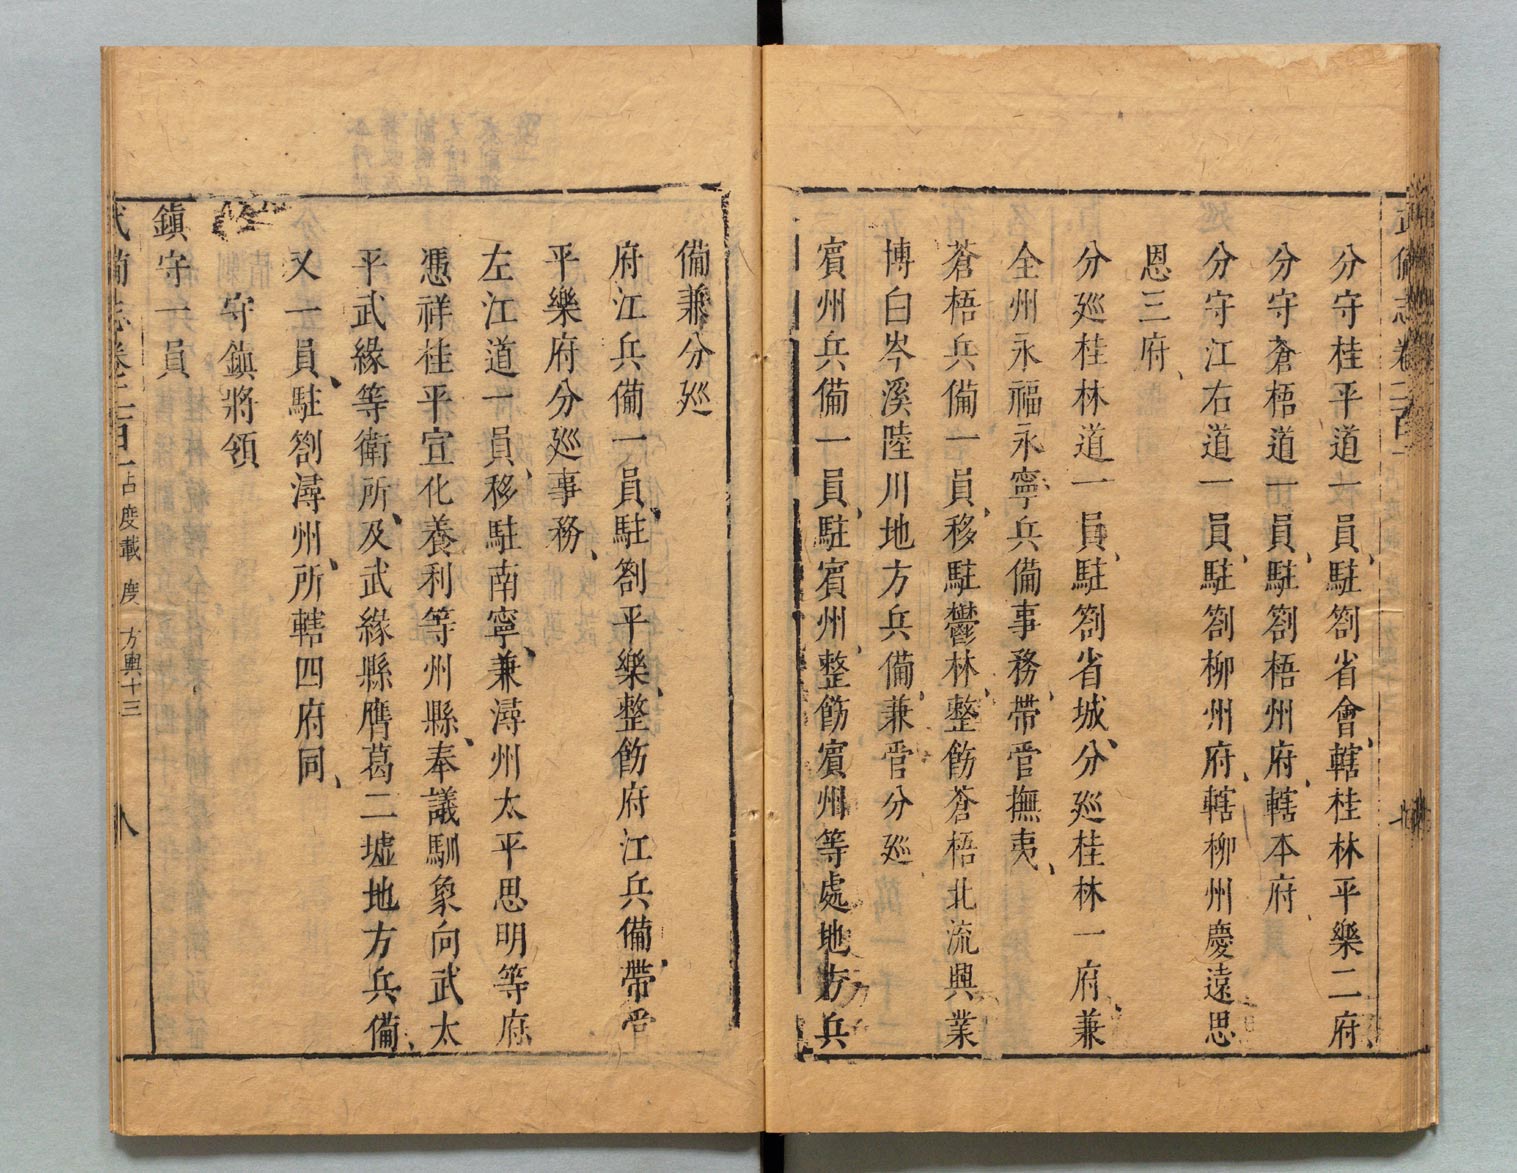 武備志卷二百一
分守桂平道一員、駐劄省會、轄桂林平樂二府、
分守蒼梧道一員、駐劄梧州府、轄本府、
分守江右道一員、駐劄柳州府、轄柳州慶遠思
恩三府、
分廵桂林道一員、駐劄省城、分廵桂林一府、兼
全州永福永寧兵備事務、帶管撫夷、
蒼梧兵備一員、移駐鬱林、整飭蒼梧北流興業
博白岑溪陸川地方兵備、兼管分廵、
賓州兵備一員、駐賓州、整飭賓州等處地方兵
備兼分廵
府江兵備一員、駐劄平樂、整飭府江兵備、帶管
平樂府分廵事務、
左江道一員、移駐南寧、兼潯州太平思明等府
憑祥桂平宣化養利等州縣、奉議馴象向武太
平武緣等衛所、及武緣縣膺葛二墟地方兵備、
又一員、駐劄潯州、所轄四府同、
守鎮將領
鎮守一員
武備志卷二百一 占度載 度 方輿十三 八